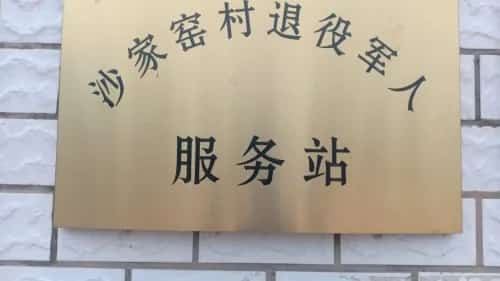 沙家窑村退役军人
服务站